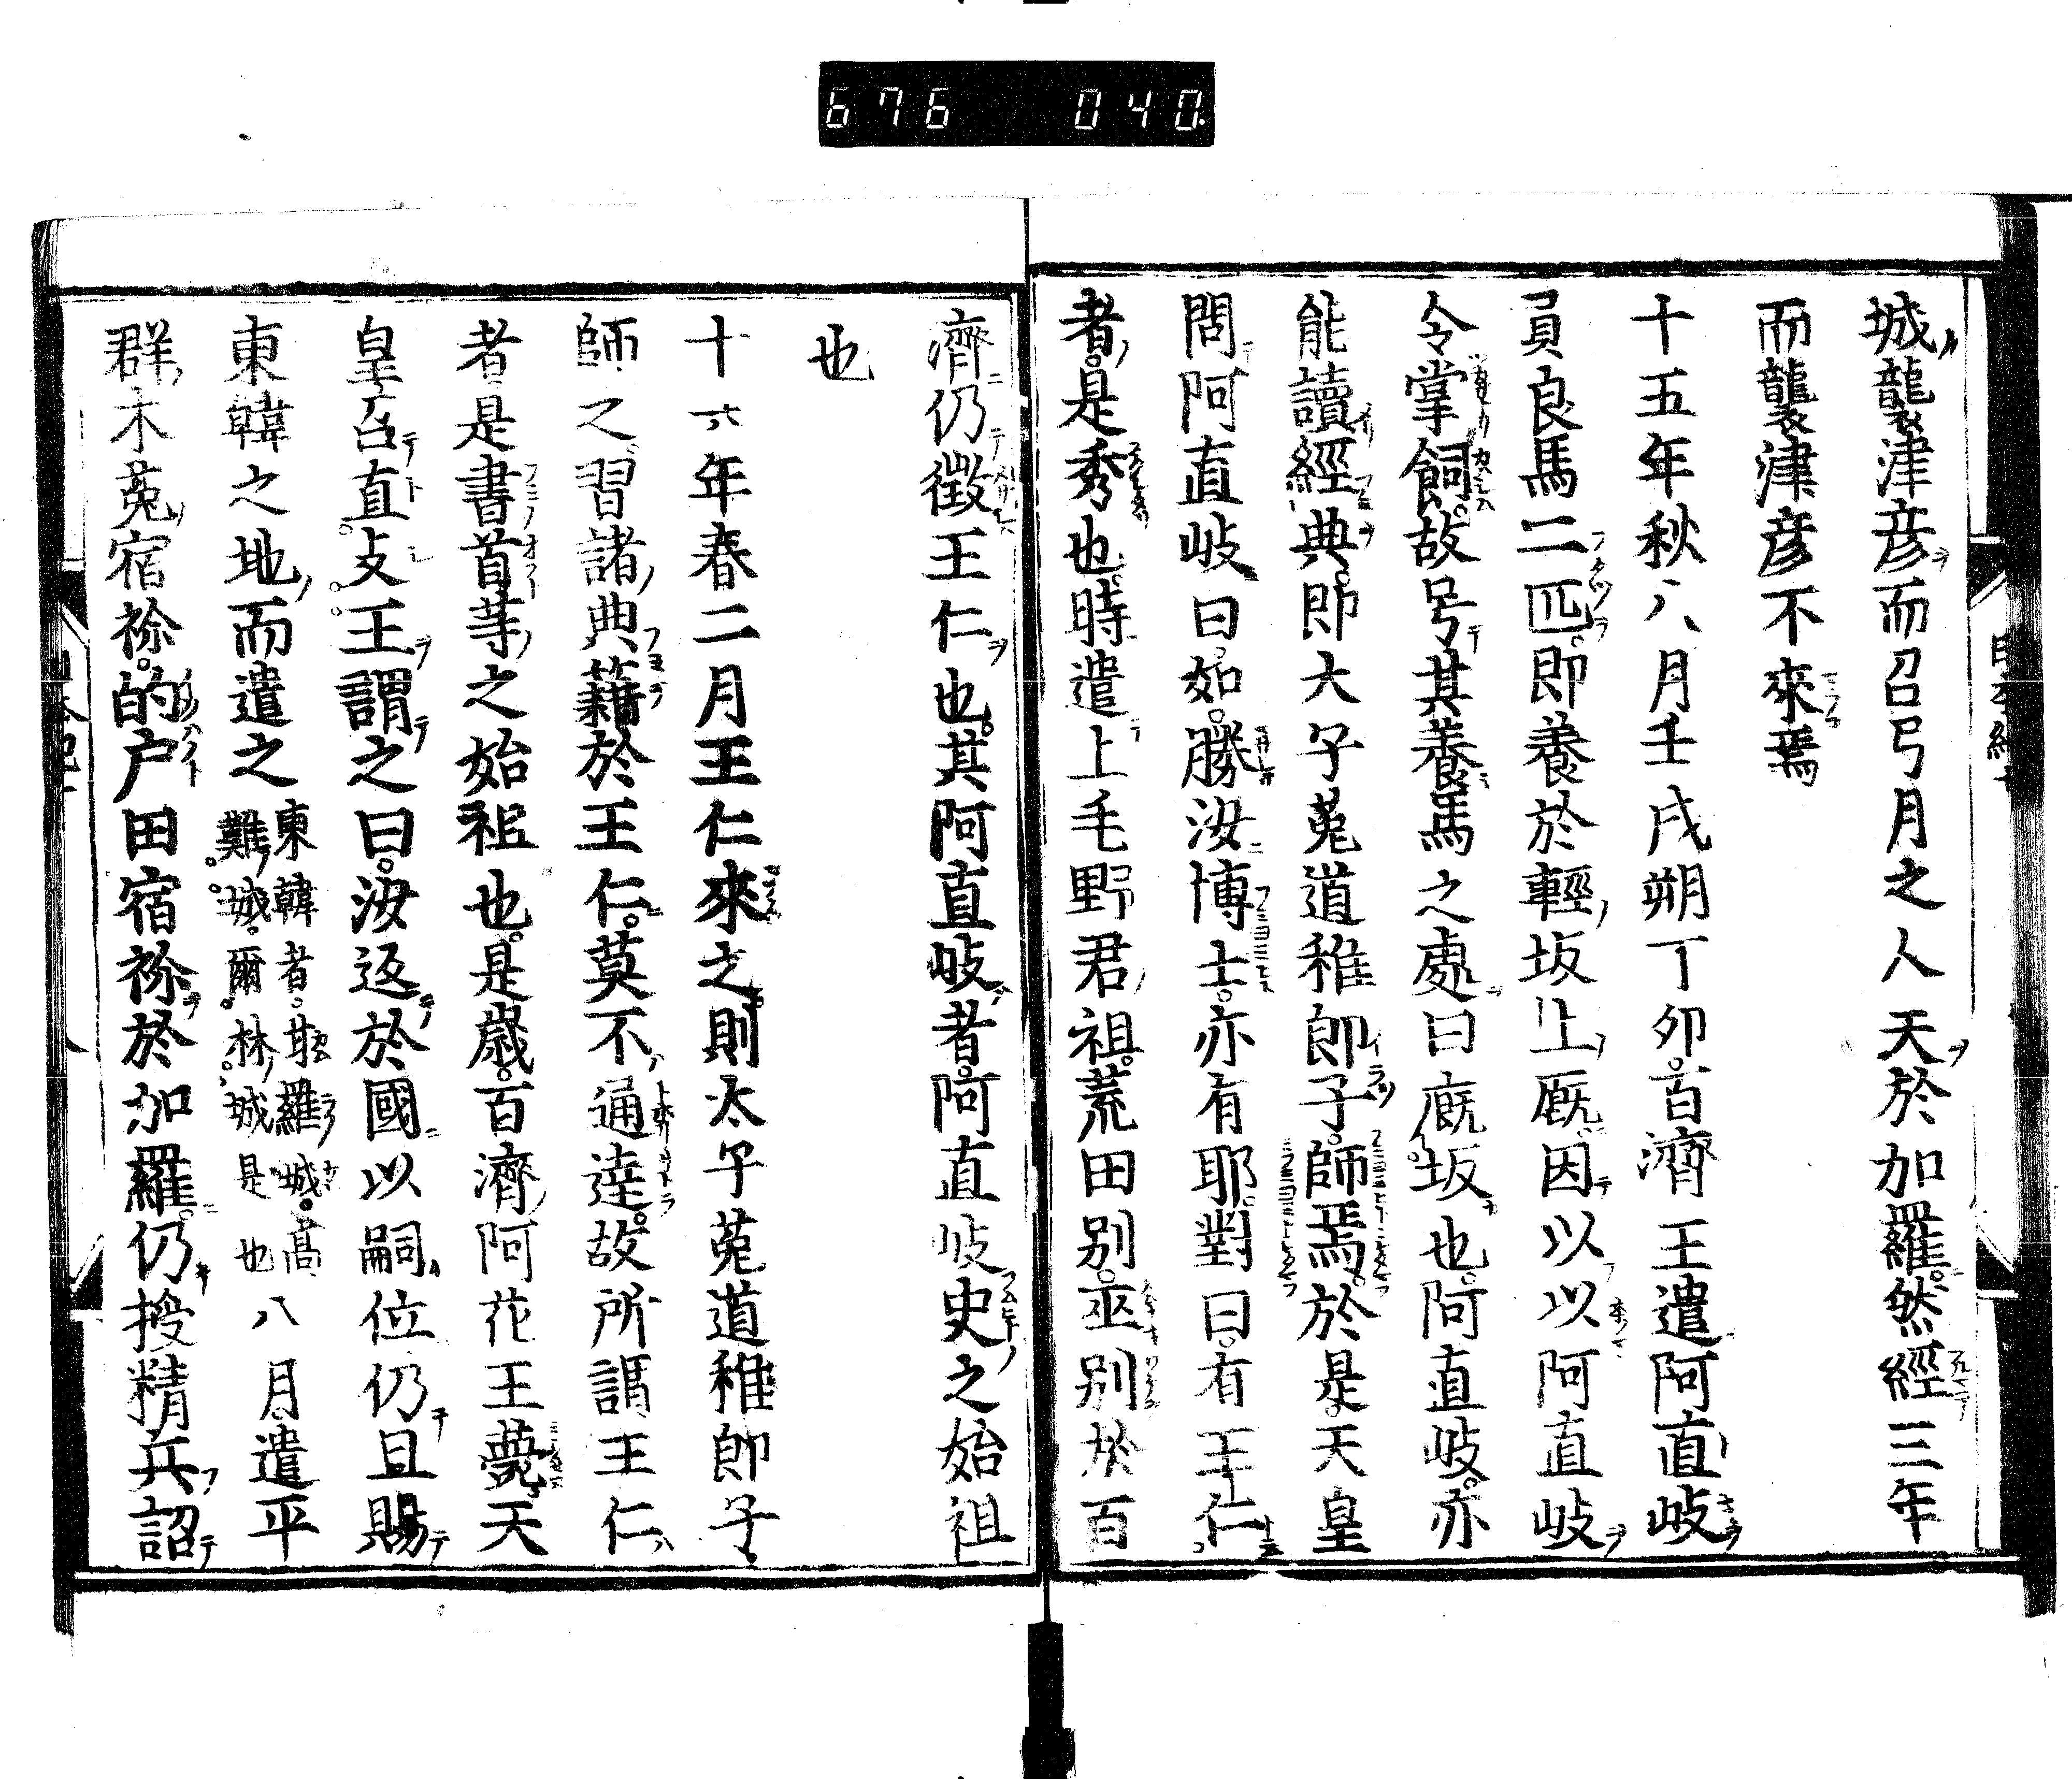 676 040
城襲津彦而召弓月之人夫於加羅然經三年
而襲津彦不來焉
十五年秋八月壬戌朔丁卯百濟王遣阿直岐
貢良馬二匹即養於輕坂上厩因以以阿直岐
令掌飼故号其養馬之處曰厩坂也阿直岐亦
能讀經典即大子菟道稚郎子師焉於是天皇
問阿直岐曰如勝汝博士亦有耶對曰有王仁
者是秀也時遣上毛野君祖荒田別巫別於百
濟仍徴王仁也其阿直岐者阿直岐史之始祖
也
十六年春二月王仁來之則太子菟道稚郎子
師之習諸典籍於王仁莫不通達故所謂王仁
者是書首等之始祖也是歳百濟阿花王薨天
皇召直支王謂之曰汝返於國以嗣位仍且賜
東韓之地而遣之東韓者甘羅城高難城爾林城是也八月遣平
群木菟宿祢的戸田宿祢於加羅仍授精兵詔